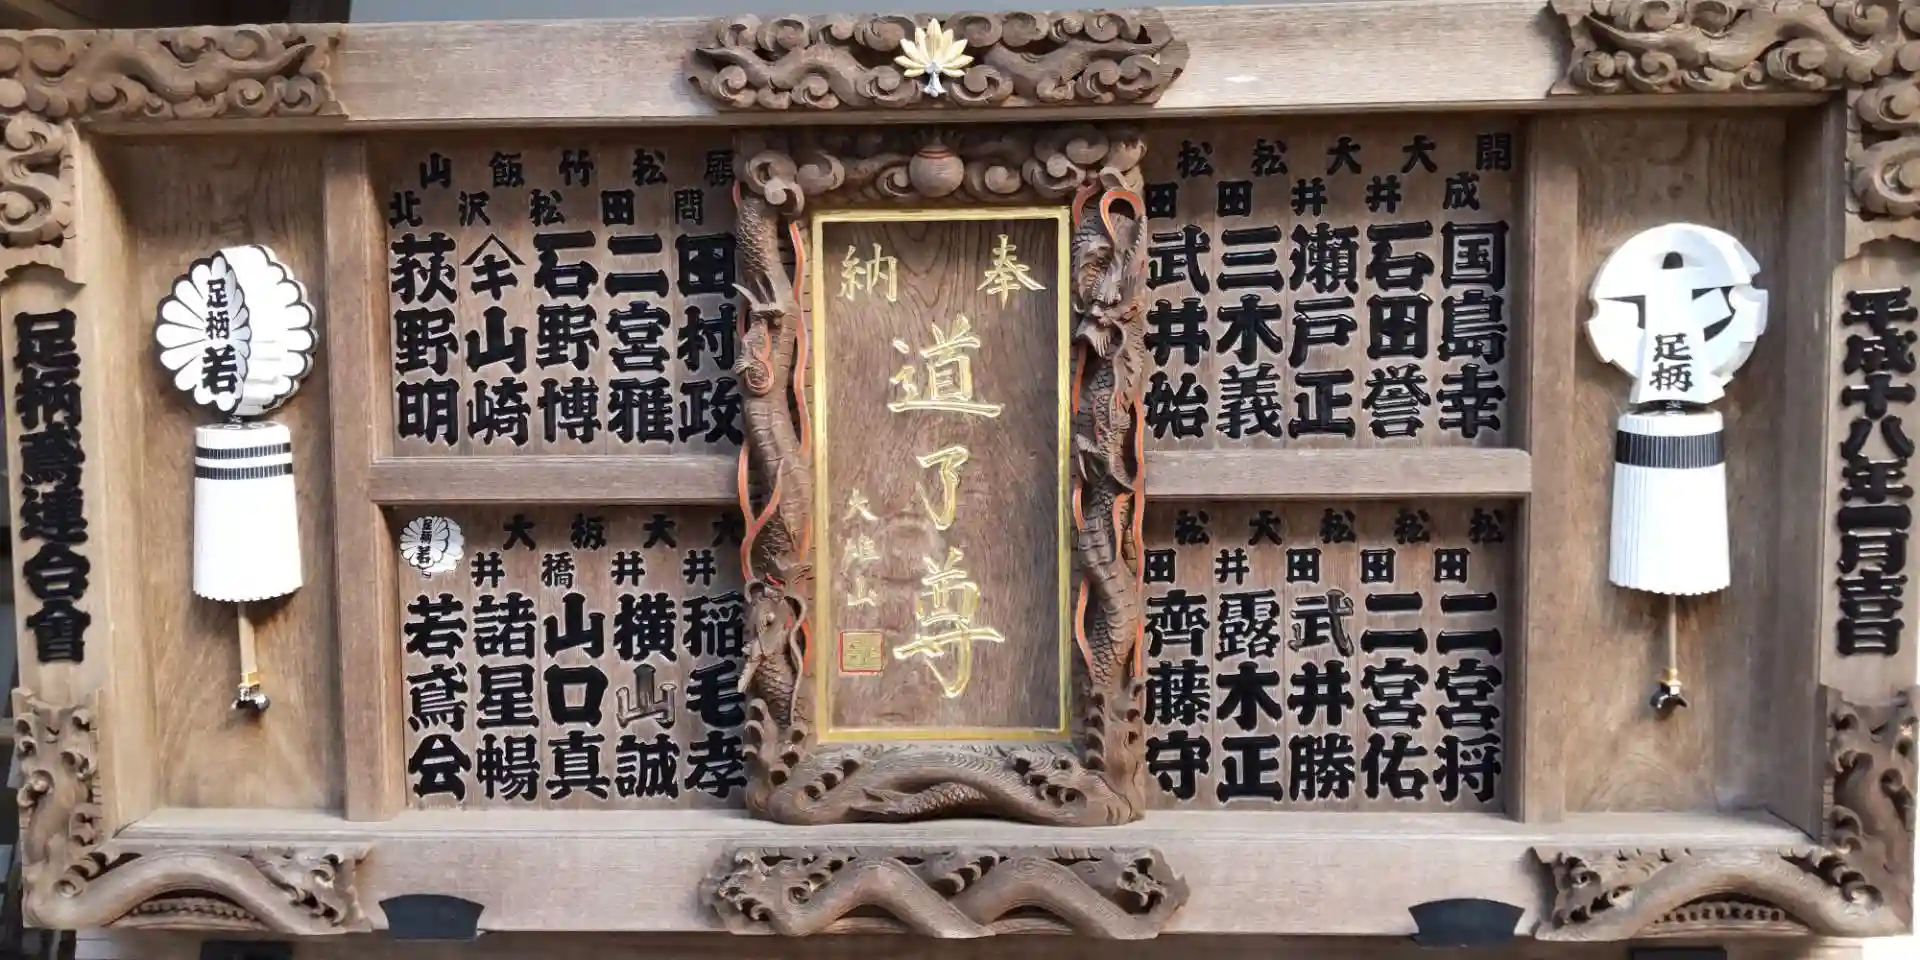 平成十八年一月吉日
足柄
開成 国島幸
大井 石田誉
大井 瀬戸正
松田 三木義
松田 武井始
松田 二宮将
松田 二宮佑
松田 武井勝
大井 露木正
松田 齊藤守
奉納
道了尊
大雄山
間田 田村政
松田 二宮雅
竹松 石野博
飯沢 山崎
山北 荻野明
大井 稲毛孝
大井 横山誠
板橋 山口真
大井 諸星暢
足柄若
若鳶会
足柄若
足柄鳶連合會